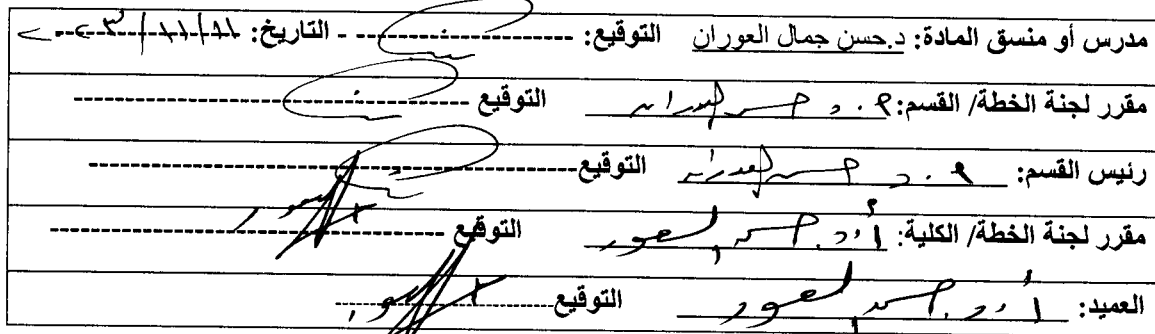 مدرس أو منسق المادة: د.حسن جمال العوران التوقيع: ---------------- - التاريخ:
مقرر لجنة الخطة/ القسم: د حسن العوران التوقيع ----------------
رئيس القسم: د حسن العوران التوقيع----------------
مقرر لجنة الخطة/ الكلية: أ.د. التوقيع ----------------
العميد: أ.د. التوقيع----------------